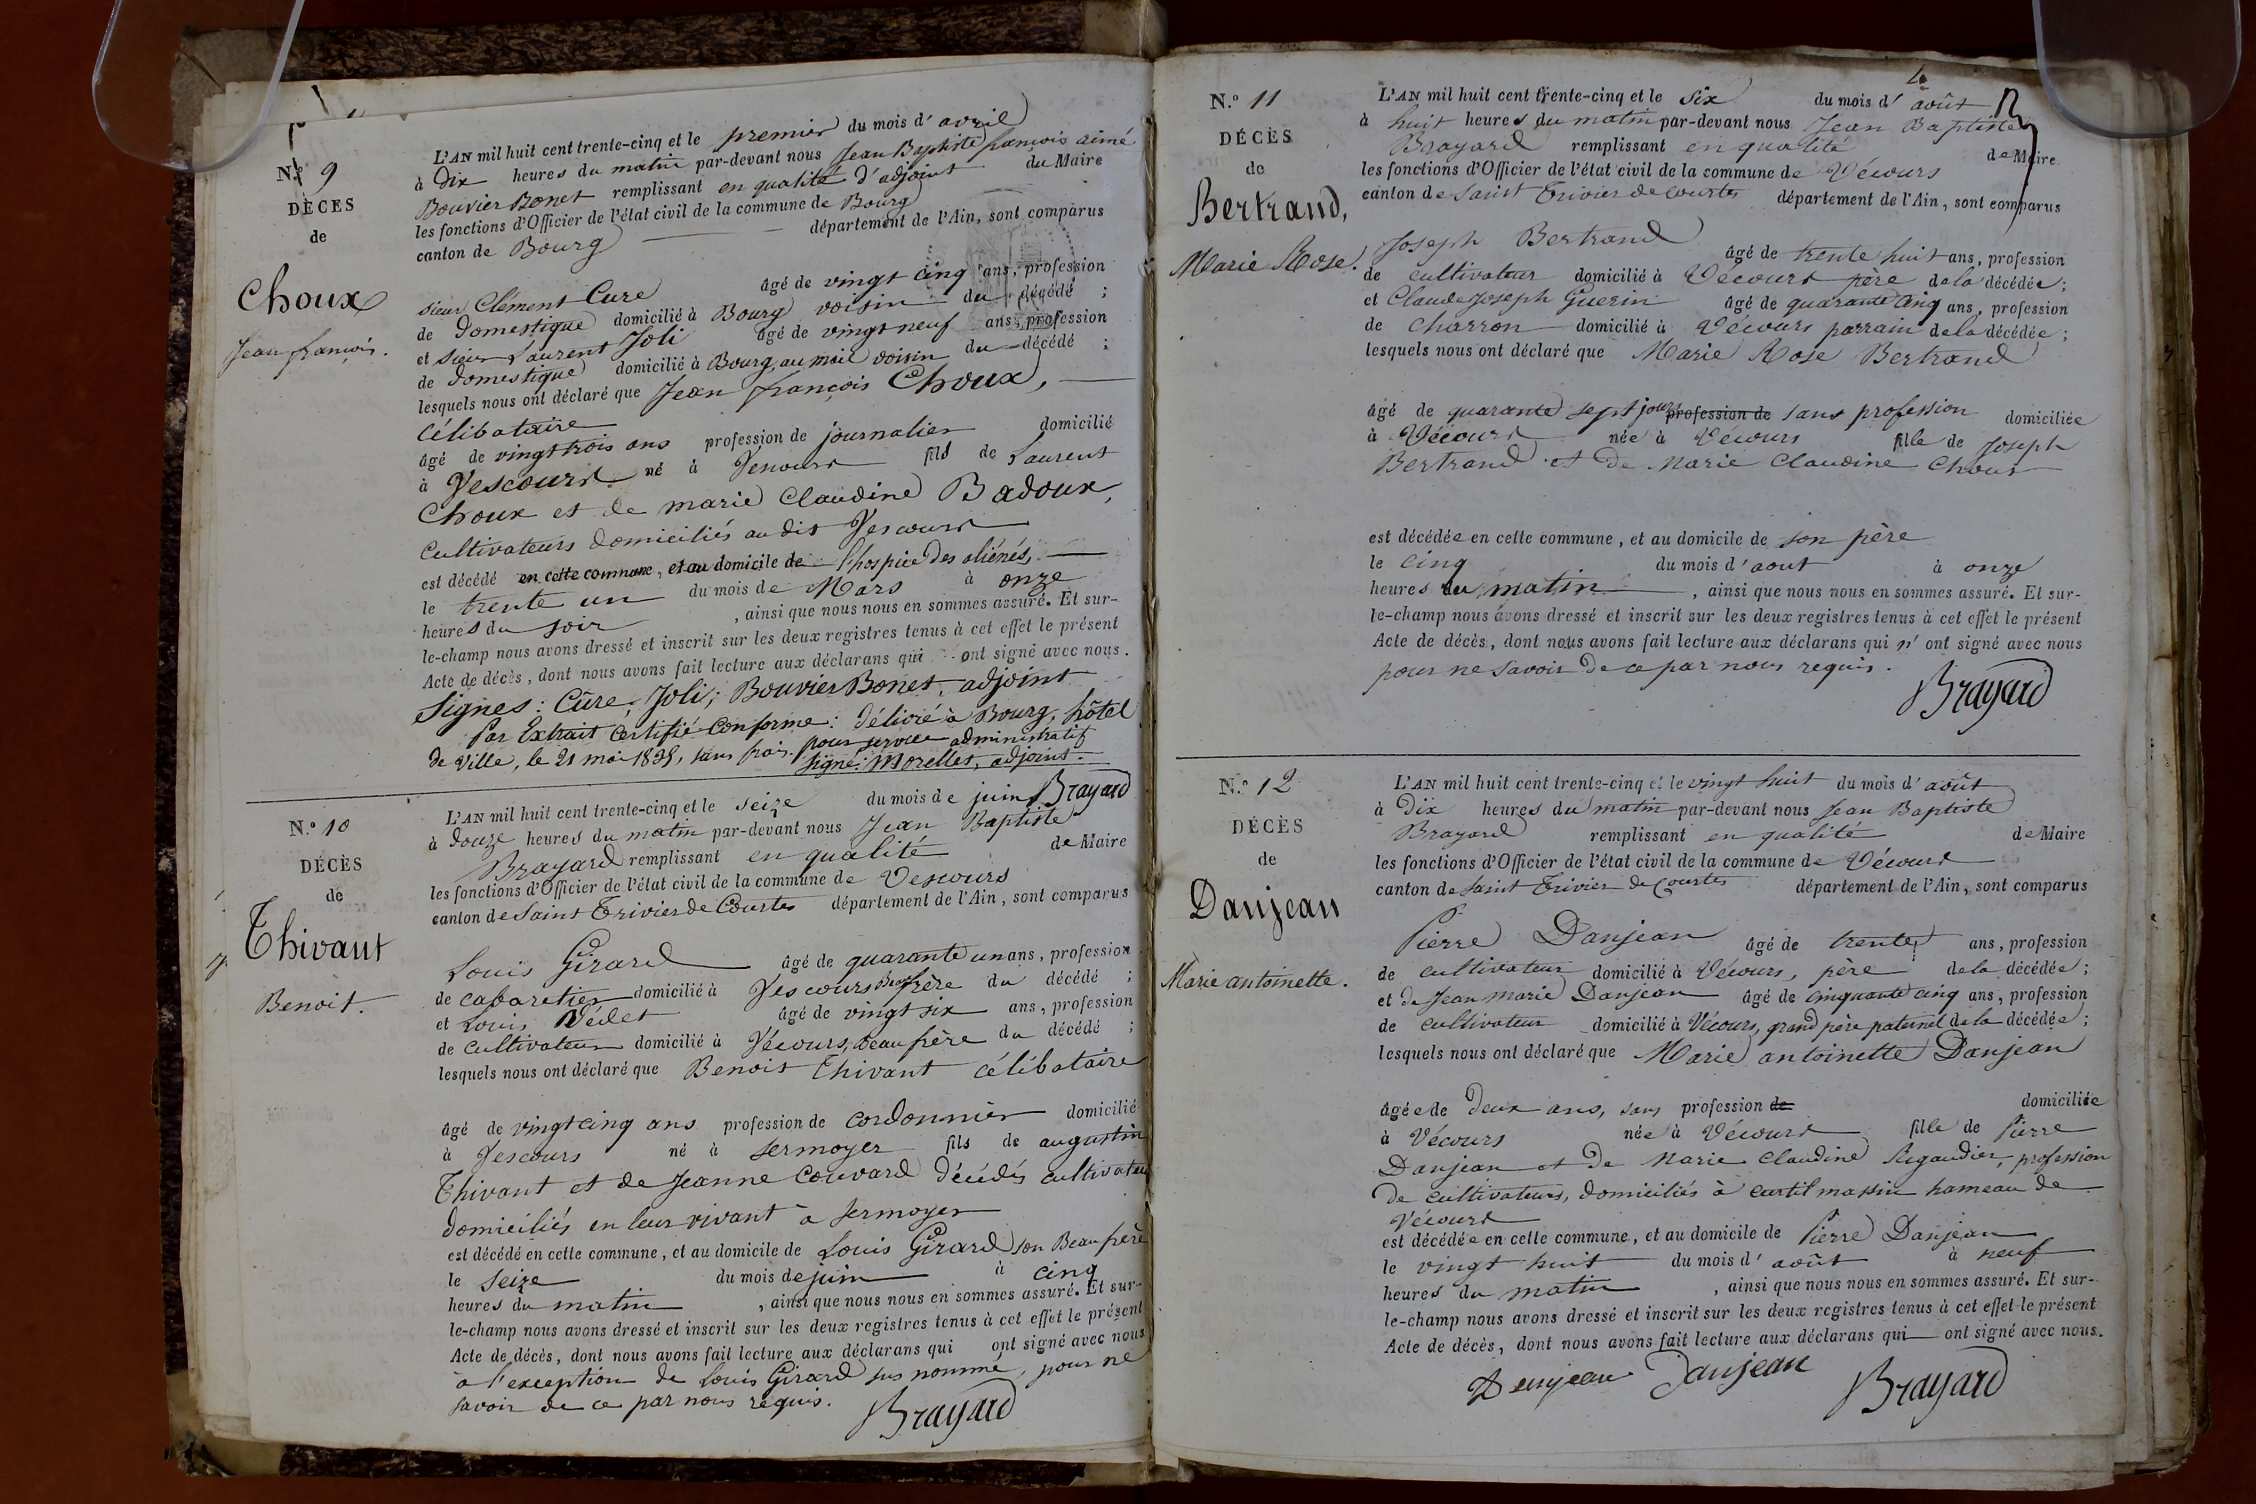 N.º 9
DÉCES
de
Choux
Jean françois.
L'AN mil huit cent trente-cinq et le premier du mois d'avril
à Dix heures du matin par-devant nous Jean Baptiste françois aimé
Bouvier Bonet remplissant en qualité d'adjoint du Maire
les fonctions d'Officier de l'état civil de la commune de Bourg
canton de Bourg département de l'Ain, sont comparus
sieur Clément Cure âgé de vingt cinq ans, profession
de Domestique domicilié à Bourg voisin du décédé ;
et sieur Laurent Joli âgé de vingt neuf ans, profession
de Domestique domicilié à Bourg, au mail voisin du décédé ;
lesquels nous ont déclaré que Jean françois Choux,
Célibataire
âgé de vingt trois ans profession de journalier domicilié
à Vescours né à Vescours fils de Laurent
Choux et de marie Claudine Badoux,
Cultivateurs domiciliés au dit Vescours
est décédé en cette commune, et au domicile de l'hospice des aliénés,
le trente un du mois de Mars à onze
heures du soir , ainsi que nous nous en sommes assuré. Et sur-
le-champ nous avons dressé et inscrit sur les deux registres tenus à cet effet le présent
Acte de décès, dont nous avons fait lecture aux déclarans qui ont signé avec nous.
Signés : Cure, Joli ; Bouvier Bonet, adjoint
Par Extrait Certifié Conforme : Délivré à Bourg, hôtel
de Ville, le 21 mai 1835, sans frais. pour service administratif
signé : Morellet, adjoint.
Brayard
N.º 10
DÉCÈS
de
Thivant
Benoit.
L'AN mil huit cent trente-cinq et le seize du mois de juin
à douze heures du matin par-devant nous Jean Baptiste
Brayard remplissant en qualité de Maire
les fonctions d'Officier de l'état civil de la commune de Vescours
canton de Saint Trivier de Courtes département de l'Ain, sont comparus
Louis Girard âgé de quarante un ans, profession
de cabaretier domicilié à Vescours Beau frère du décédé ;
et Louis Védet âgé de vingt six ans, profession
de Cultivateur domicilié à Vécours, beau frère du décédé ;
lesquels nous ont déclaré que Benoit Thivant célibataire
âgé de vingt cinq ans profession de cordonnier domicilié
à Vescours né à Sermoyer fils de augustin
Thivant et de Jeanne Couvard décédés cultivateurs
domiciliés en leur vivant à Sermoyer
est décédé en cette commune, et au domicile de Louis Girard son Beau frère
le seize du mois de juin à cinq
heures du matin , ainsi que nous nous en sommes assuré. Et sur-
le-champ nous avons dressé et inscrit sur les deux registres tenus à cet effet le présent
Acte de décès, dont nous avons fait lecture aux déclarans qui ont signé avec nous
à l'exception de Louis Girard sus nommé, pour ne
savoir de ce par nous requis.
Brayard
N.º 11
DÉCÈS
de
Bertrand,
Marie Rose.
L'AN mil huit cent trente-cinq et le six du mois d'août
à huit heures du matin par-devant nous Jean Baptiste
Brayard remplissant en qualité de Maire
les fonctions d'Officier de l'état civil de la commune de Vécours
canton de Saint Trivier de courtes département de l'Ain, sont comparus
Joseph Bertrand âgé de trente huit ans, profession
de cultivateur domicilié à Vécours père de la décédée ;
et Claude Joseph Guerin âgé de quarante cinq ans, profession
de charron domicilié à Vécours parrain de la décédée ;
lesquels nous ont déclaré que Marie Rose Bertrand
âgé de quarante sept jours profession de sans profession domiciliée
à Vécours née à Vécours fille de Joseph
Bertrand et de Marie Claudine Choux
est décédée en cette commune, et au domicile de son père
le cinq du mois d'aout à onze
heures du matin , ainsi que nous nous en sommes assuré. Et sur-
le-champ nous avons dressé et inscrit sur les deux registres tenus à cet effet le présent
Acte de décès, dont nous avons fait lecture aux déclarans qui n'ont signé avec nous
pour ne savoir de ce par nous requis.
Brayard
N.º 12
DÉCÈS
de
Danjean
Marie antoinette.
L'AN mil huit cent trente-cinq et le vingt huit du mois d'août
à Dix heures du matin par-devant nous Jean Baptiste
Brayard remplissant en qualité de Maire
les fonctions d'Officier de l'état civil de la commune de Vécours
canton de Saint Trivier de Courtes département de l'Ain, sont comparus
Pierre Danjean âgé de trente ans, profession
de cultivateur domicilié à Vécours, père de la décédée ;
et de Jean marie Danjean âgé de cinquante cinq ans, profession
de cultivateur domicilié à Vécours, grand père paternel de la décédée ;
lesquels nous ont déclaré que Marie antoinette Danjean
âgée de Deux ans, sans profession de domiciliée
à Vécours née à Vécours fille de Pierre
Danjean et de Marie Claudine Rigaudier, profession
de cultivateurs, domiciliés à curtil massin hameau de
Vécours
est décédée en cette commune, et au domicile de Pierre Danjean
le vingt huit du mois d'août à neuf
heures du matin , ainsi que nous nous en sommes assuré. Et sur-
le-champ nous avons dressé et inscrit sur les deux registres tenus à cet effet le présent
Acte de décès, dont nous avons fait lecture aux déclarans qui ont signé avec nous.
Danjean Danjean Brayard